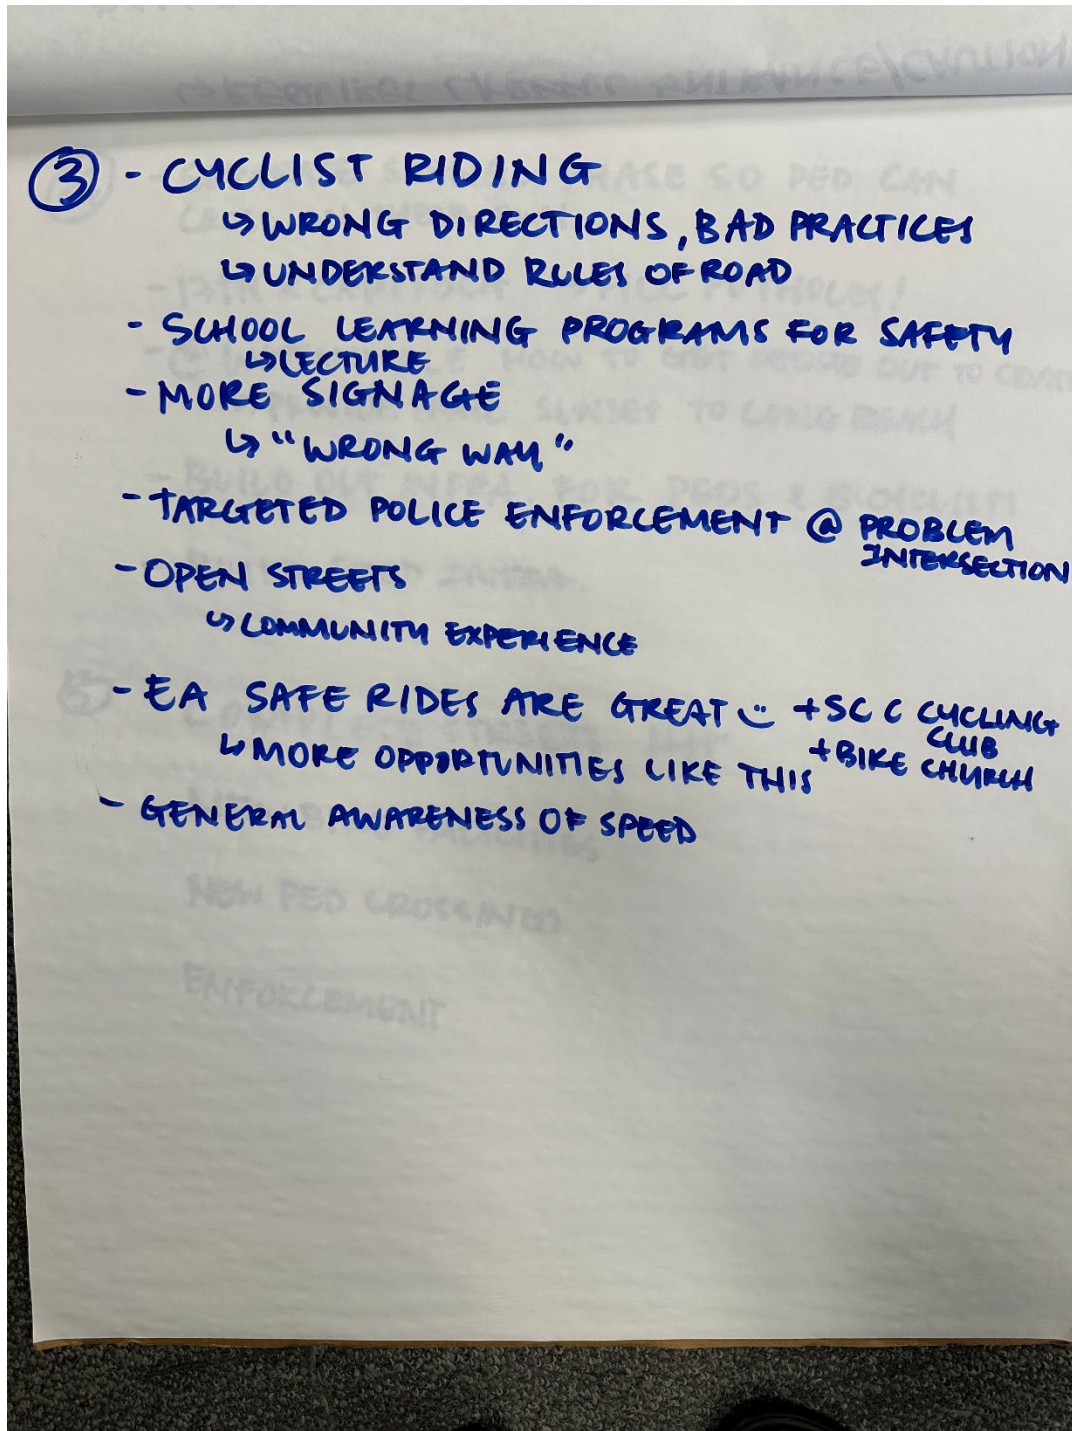 ③ - CYCLIST RIDING
↳ WRONG DIRECTIONS, BAD PRACTICES
↳ UNDERSTAND RULES OF ROAD
- SCHOOL LEARNING PROGRAMS FOR SAFETY
↳ LECTURE
- MORE SIGNAGE
↳ "WRONG WAY"
- TARGETED POLICE ENFORCEMENT @ PROBLEM
INTERSECTION
- OPEN STREETS
↳ COMMUNITY EXPERIENCE
- EA SAFE RIDES ARE GREAT :) + SC C CYCLING
CLUB
↳ MORE OPPORTUNITIES LIKE THIS + BIKE CHURCH
- GENERAL AWARENESS OF SPEED
NEW PED CROSSINGS
ENFORCEMENT